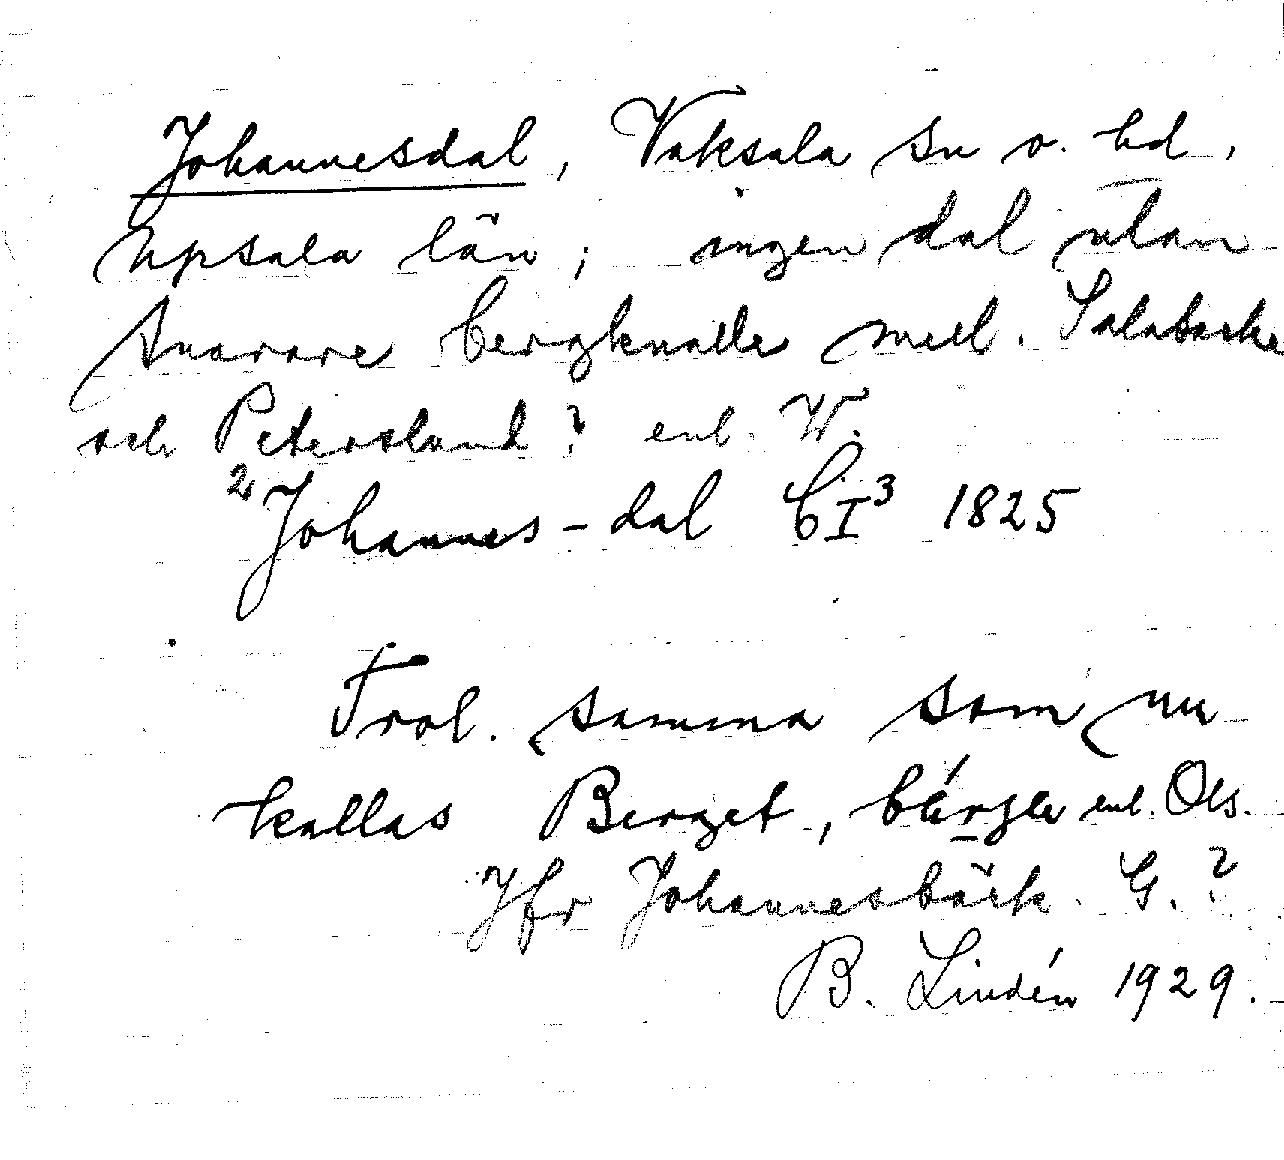 Johannesdal, Vaksala sn o. hd,
Upsala län; ingen dal utan
snarare bergknalle mell. Salabacke
och Peterslund? enl. W.
2 Johannes-dal CI³ 1825
Trol. samma som nu
kallas Berget, enl. Ols.
Jfr Johannesbäck. G.?
B. Lindén 1929.